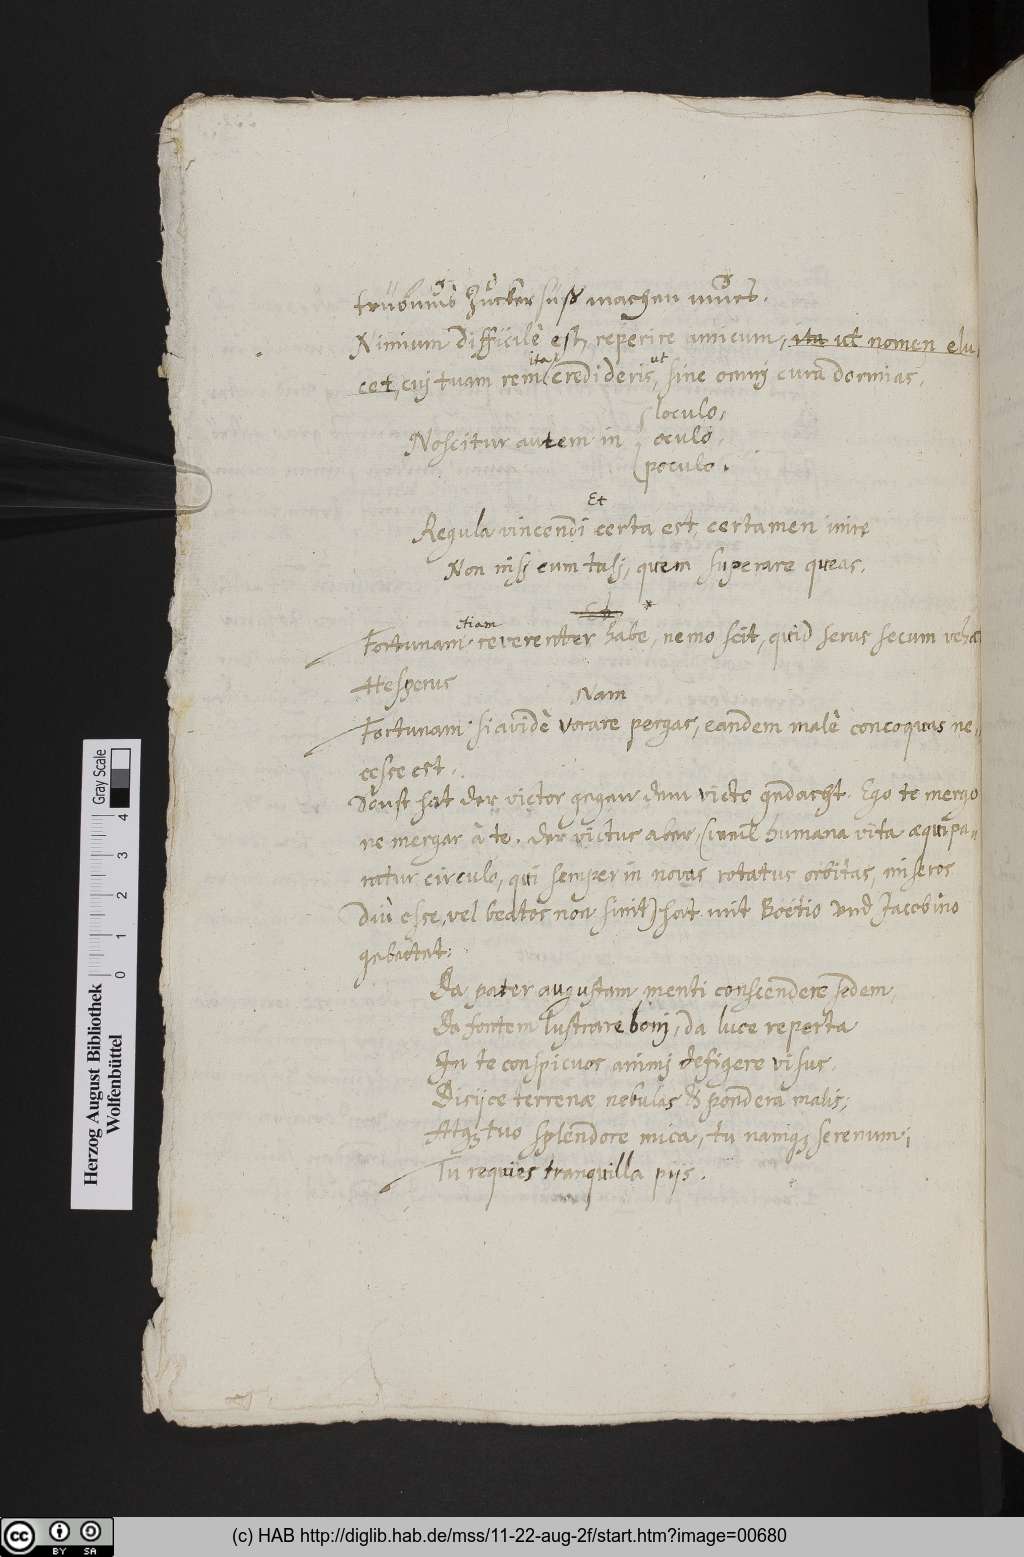 Zucker süß machen
Nimium difficilè est, reperire amicum, ita ut nomen elu,
cet, cuj tuam rem ita credideris, ut sine omnj curâ dormias.
Noscitur autem in
loculo,
oculo,
poculo.
Et
Regula vincendi certa est, certamen inire
Non nisj cum talj, quem superare queas.
Fortunam etiam reverenter habe, nemo scit, quid serus secum vehat
Hesperus
Nam
Fortunam si avidè vorare pergas, eandem malè concoquas ne-
cesse est.
Sonst hat der victor gegen dem victo gedacht. Ego te mergo
ne mergar à te. der victus aber, (weil humana vita æquipa-
ratur circulo, qui semper in novas rotatus orbitas, miseros
diù esse, vel beatos non sinit) hat mit Boëtio und Jacobino
gebetet:
Da pater augustam menti conscendere sedem,
Da fontem lustrare bonj, da luce reperta
In te conspicuos animj defigere visus.
Disijce terrenæ nebulas & pondera malis;
Atq; tuo splendore mica, tu namq; serenum,
Tu requies tranquilla pijs.
Herzog August Bibliothek
Wolfenbüttel
0 1 2 3 4
Gray Scale
cc BY SA
(c) HAB http://diglib.hab.de/mss/11-22-aug-2f/start.htm?image=00680